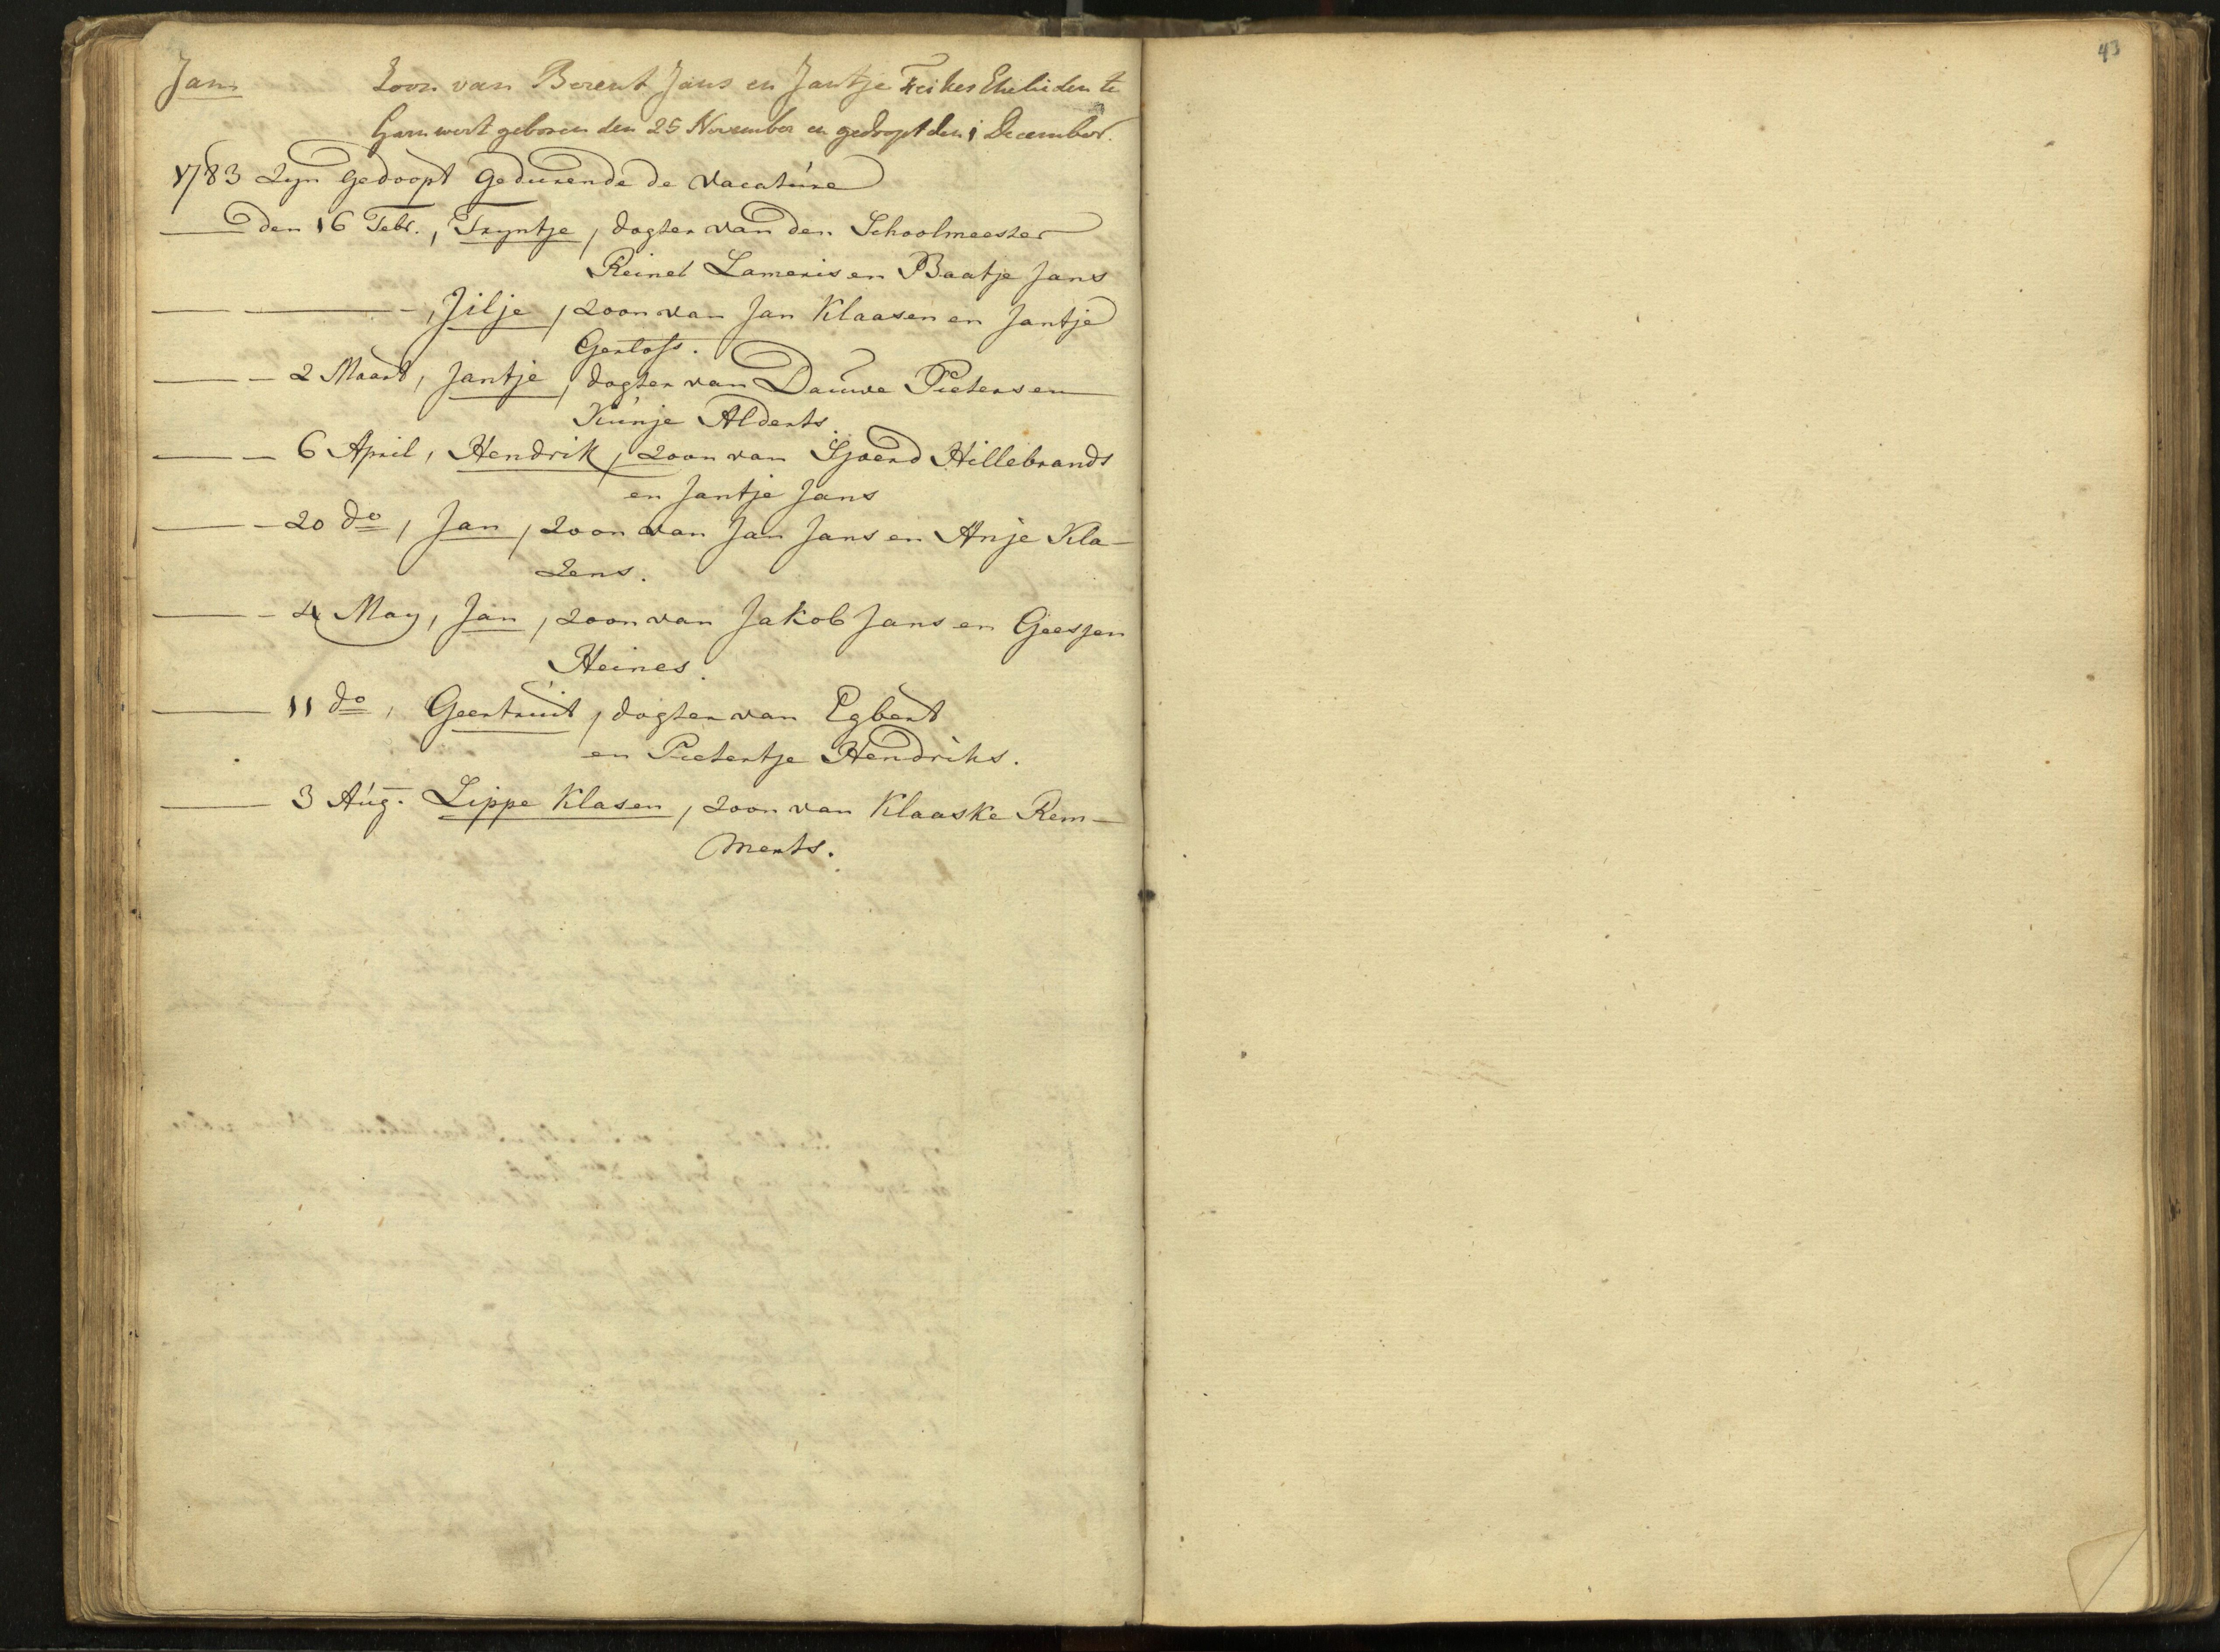 Jan Zoon van Berent Jans en Jantje Feikes Ehelieden te
Garnwert geboren den 25 November en gedoopt den 1 December.
1783 Zyn gedoopt gedurende de vacatúre
den 16 Febr., Tryntje, dogter van den Schoolmeester
Reinet Lameris en Baatje Jans
— — -, Jilje, zoon van Jan Klaasen en Jantje
Gerlofs.
— - 2 Maart, Jantje, dogter van Dauwe Pieters en
Kúnje Alderts.
— - 6 April, Hendrik, zoon van Sjoerd Hillebrands
en Jantje Jans
— - 20 do, Jan, zoon van Jan Jans en Anje Kla-
zens.
— - 4 May, Jan, zoon van Jakob Jans en Geesjen
Heines.
— 11 do, Geertruit, dogter van Egbert
en Pietertje Hendriks.
— 3 Aúg. Lippe Klasen, zoon van Klaaske Rem-
merts.
43